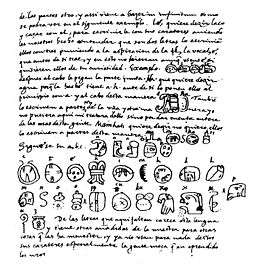 de las partes otro, y assi viene a hazer in infinitum como
se podra ver en el siguiente exemplo. Lé, quiere dezir laço
y caçar con el, para escrivirle con sus carateres aviendo
les nosotros hecho entender que son dos letras lo escrivian
ellos con tres puniendo a la aspiracion de la l, la vocal e,
que antes de si trae, y en esto no hierran
quisieren ellos de su curiosidad. Exemplo
despues al cabo le pegan la parte junta. Ha que quiere dezir
agua porq la hache tiene a, h. ante de si lo ponen ellos al
principio con a y al cabo desta manera
lo escriven a partes de la una y otra
no pusiera aqui ni tratara dello sino por dar cuenta entera
de las cosas desta gente. Ma in kati quiere dezir no quiero ellos
lo escriven a partes desta manera
Siguese su a, b, c.
De las letras que aqui faltan carece esta lengua
y tiene otras añadidas de la nuestra para otras
cosas q las ha menester, y ya no usan para nada destos
sus carateres especialmente la gente moça q an aprendido
los nros